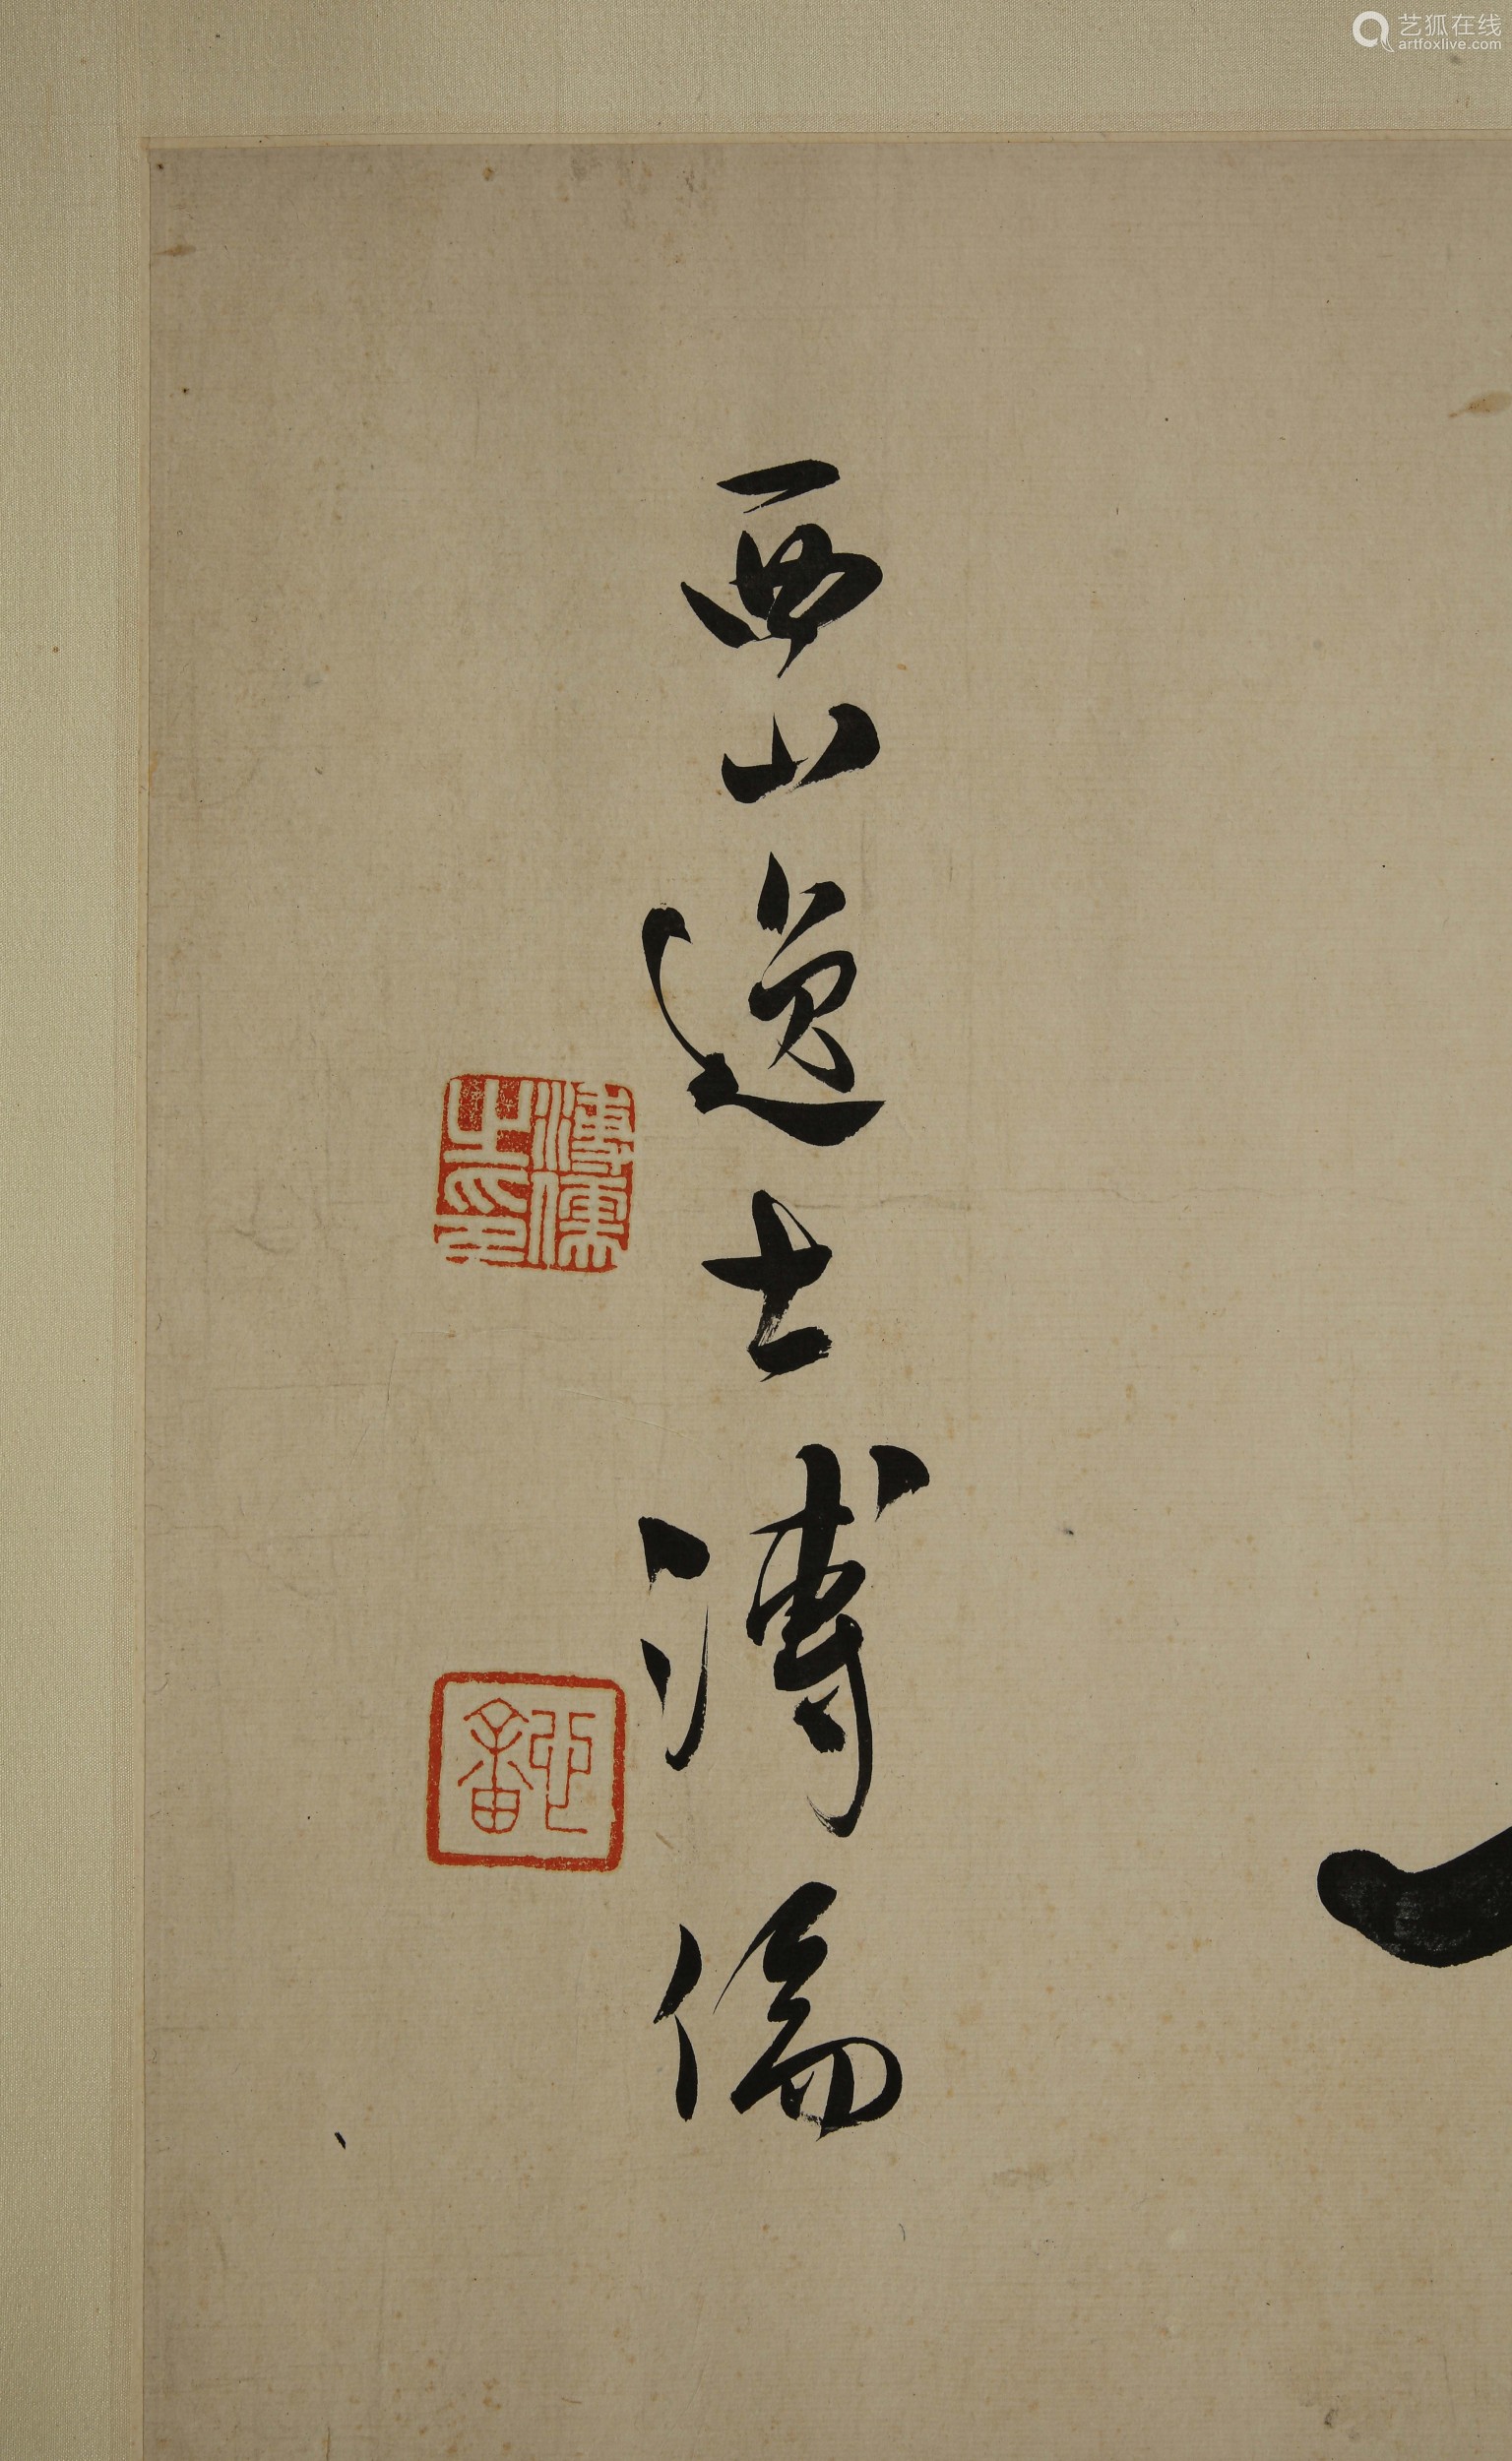 艺狐在线
artfoxlive.com
西山逸士溥儒
溥儒之印